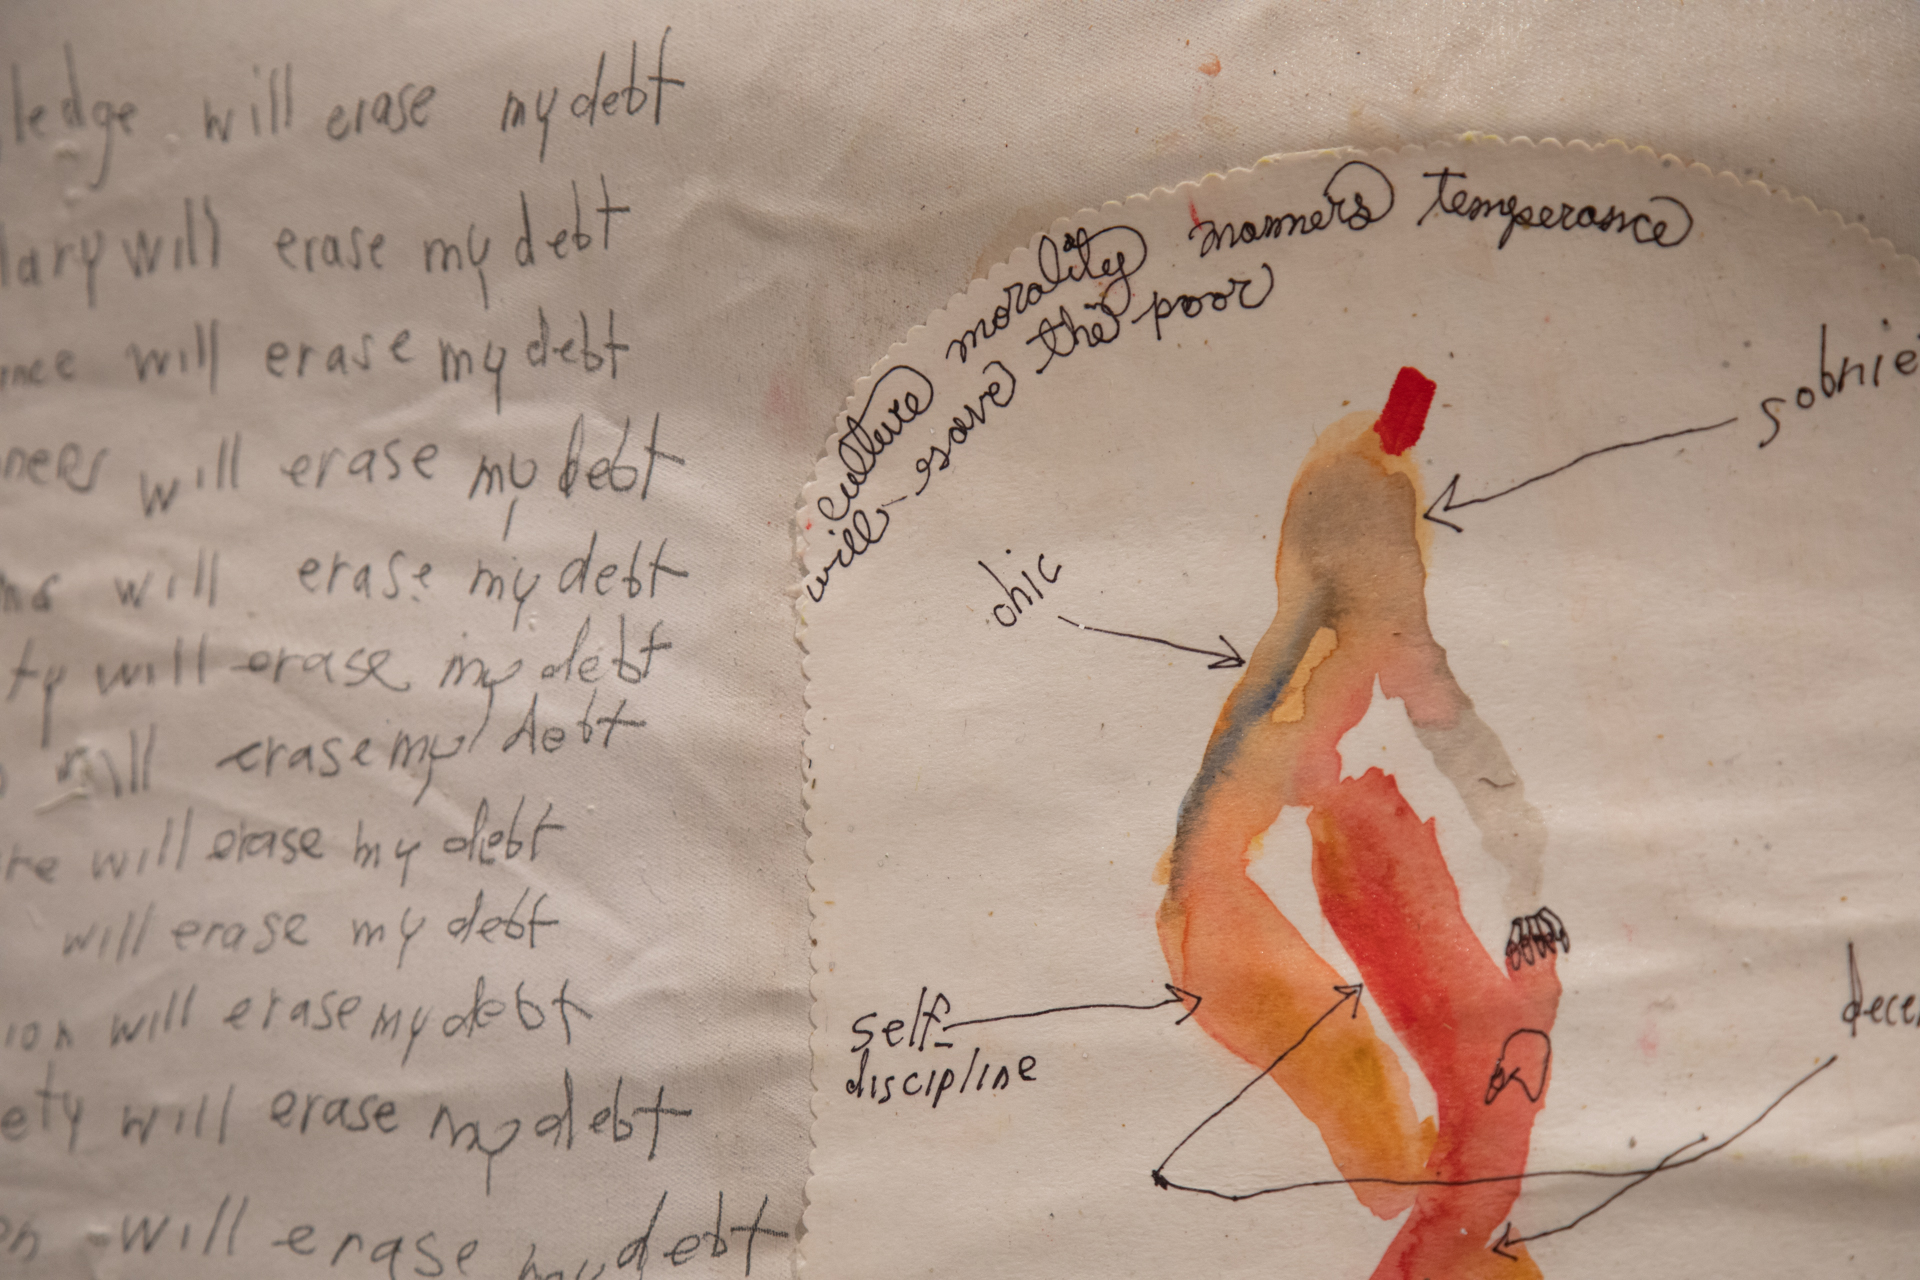 ledge will erase my debt
lary will erase my debt
nce will erase my debt
ners will erase my debt
ns will erase my debt
ty will erase my debt
will erase my debt
re will erase my debt
will erase my debt
ion will erase my debt
ety will erase my debt
on will erase my debt
culture morality manners temperance
will save the poor
sobrie
chic
self-
discipline
decen